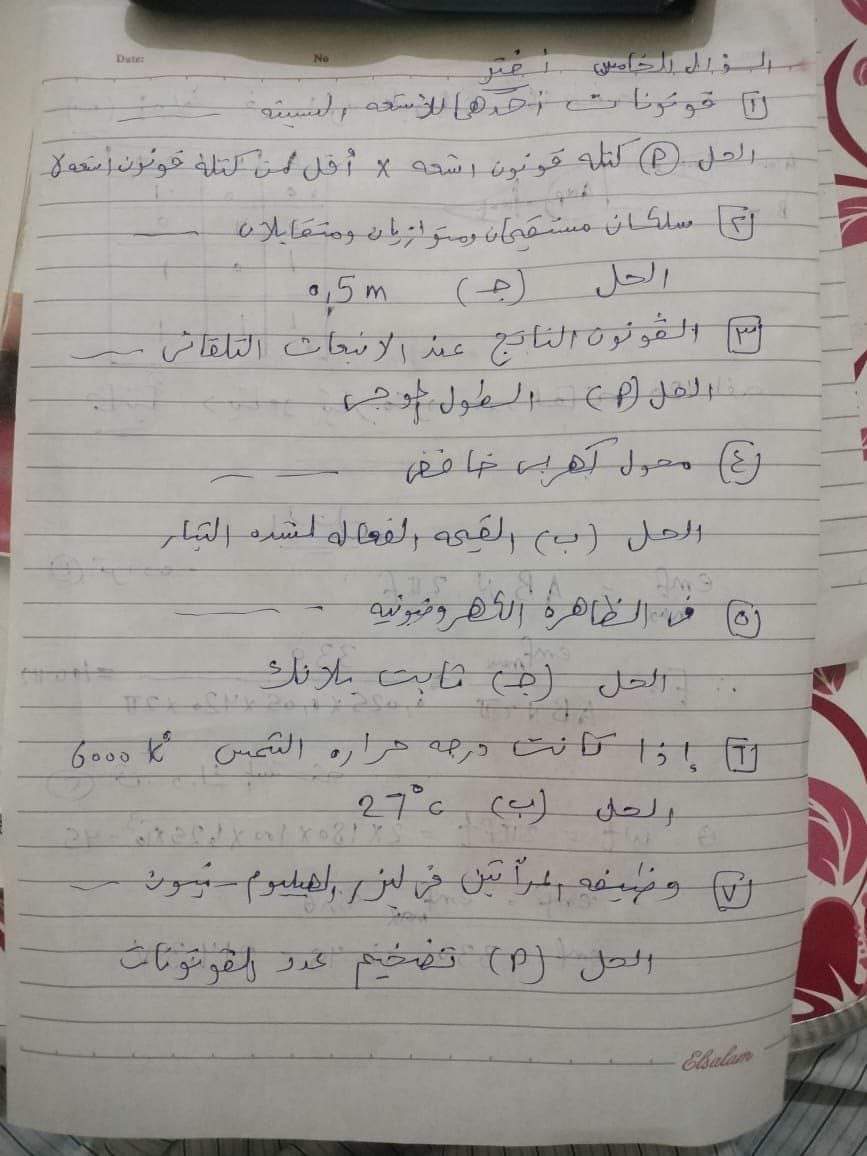 Date: No
السؤال الخامس اختر
١ فوتونات أحدهما للأشعه السينيه
الحل (P) كتله فوتون اشعه x أقل من كتلة فوتون أشعه لا
٢ سلكان مستقيمان ومتوازيان ومتقابلان
الحل (جـ) 0,5 m
٣ الفوتون الناتج عند الانبعاث التلقائى
الحل (P) الطول الموجى
٤ محول كهربى خافض
الحل (ب) القيمه الفعاله لشده التيار
٥ فى الظاهرة الكهروضوئيه
الحل (جـ) ثابت بلانك
٦ إذا كانت درجه حراره الشمس 6000 K°
الحل (ب) 27°c
٧ وظيفه المرآتين فى ليزر الهيليوم - نيون
الحل (P) تضخيم عدد الفوتونات
Elsalam